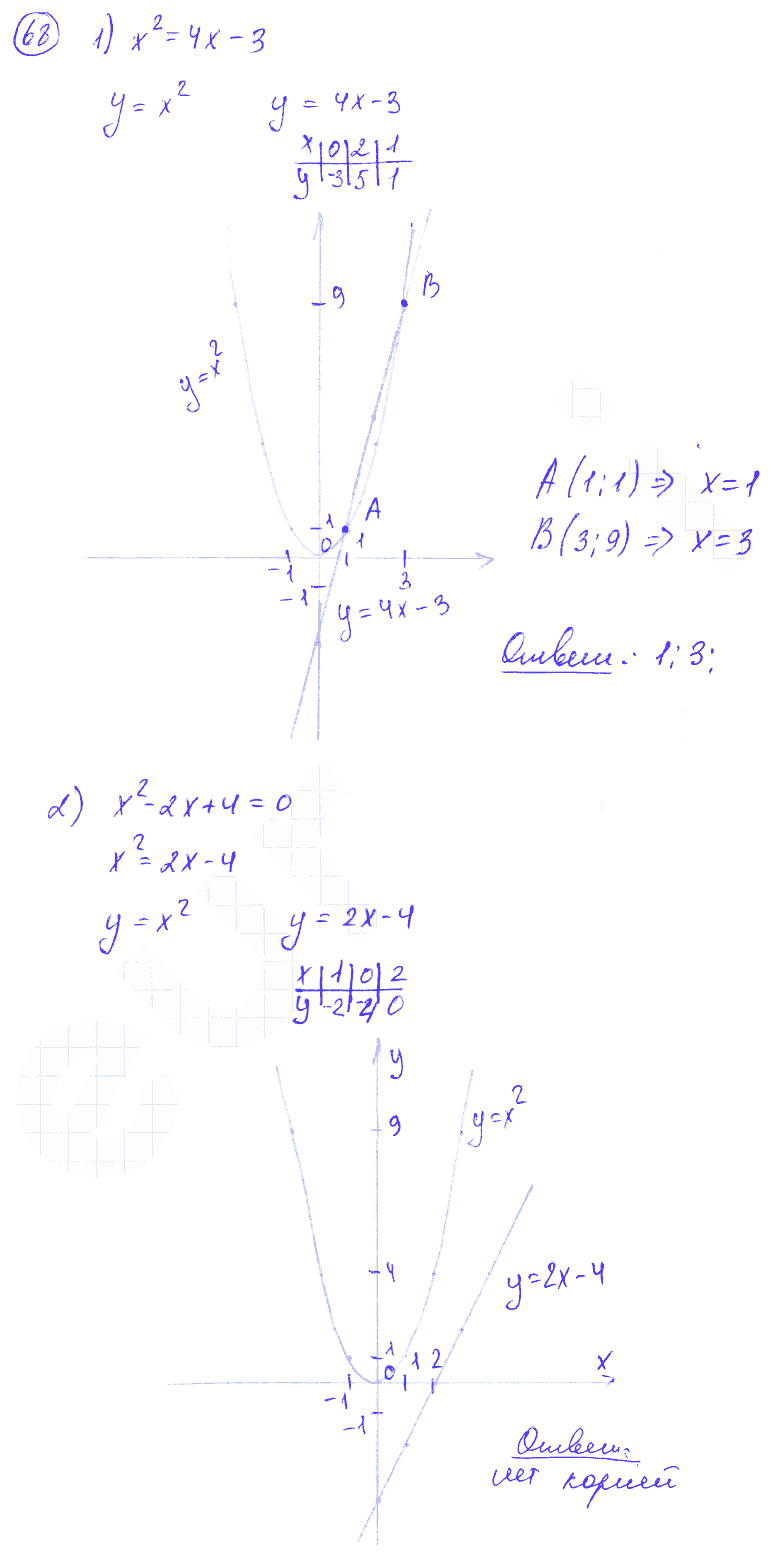 68 1) x² = 4x - 3
y = x² y = 4x - 3
x | 0 | 2 | 1
y | -3 | 5 | 1
9 B
y = x²
A
1
0 1
-1 3
-1
y = 4x - 3
A (1; 1) => x = 1
B (3; 9) => x = 3
Ответ: 1; 3;
2) x² - 2x + 4 = 0
x² = 2x - 4
y = x² y = 2x - 4
x | 1 | 0 | 2
y | -2 | -4 | 0
y
9 y = x²
4 y = 2x - 4
1
0 1 2 x
-1
-1
Ответ:
нет корней